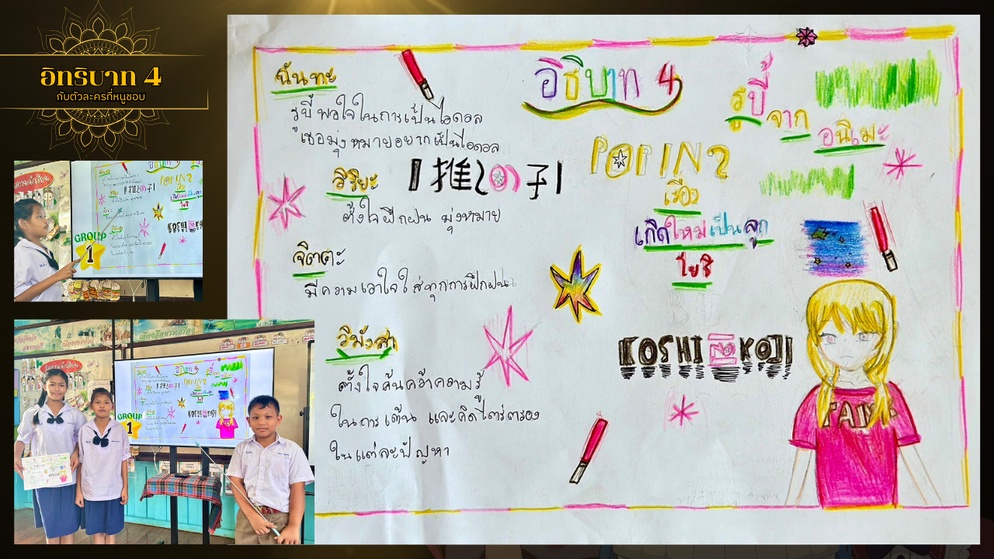 อิทธิบาท 4
กับตัวละครที่หนูชอบ
GROUP
1
GROUP
1
อิธิบาท 4
ฉันทะ
รูบี้พอใจในการเป็นไอดอล
เธอมุ่งหมายอยากเป็นไอดอล
วิริยะ
ตั้งใจฝึกฝน มุ่งหมาย
จิตตะ
มีความเอาใจใส่ทุกการฝึกฝน
วิมังสา
ตั้งใจค้นคว้าความรู้
ในการเต้น และคิดไตร่ตรอง
ในแต่ละปัญหา
【推しの子】
รูบี้
จาก
อนิเมะ
เรื่อง
เกิดใหม่เป็นลูก
โอชิ